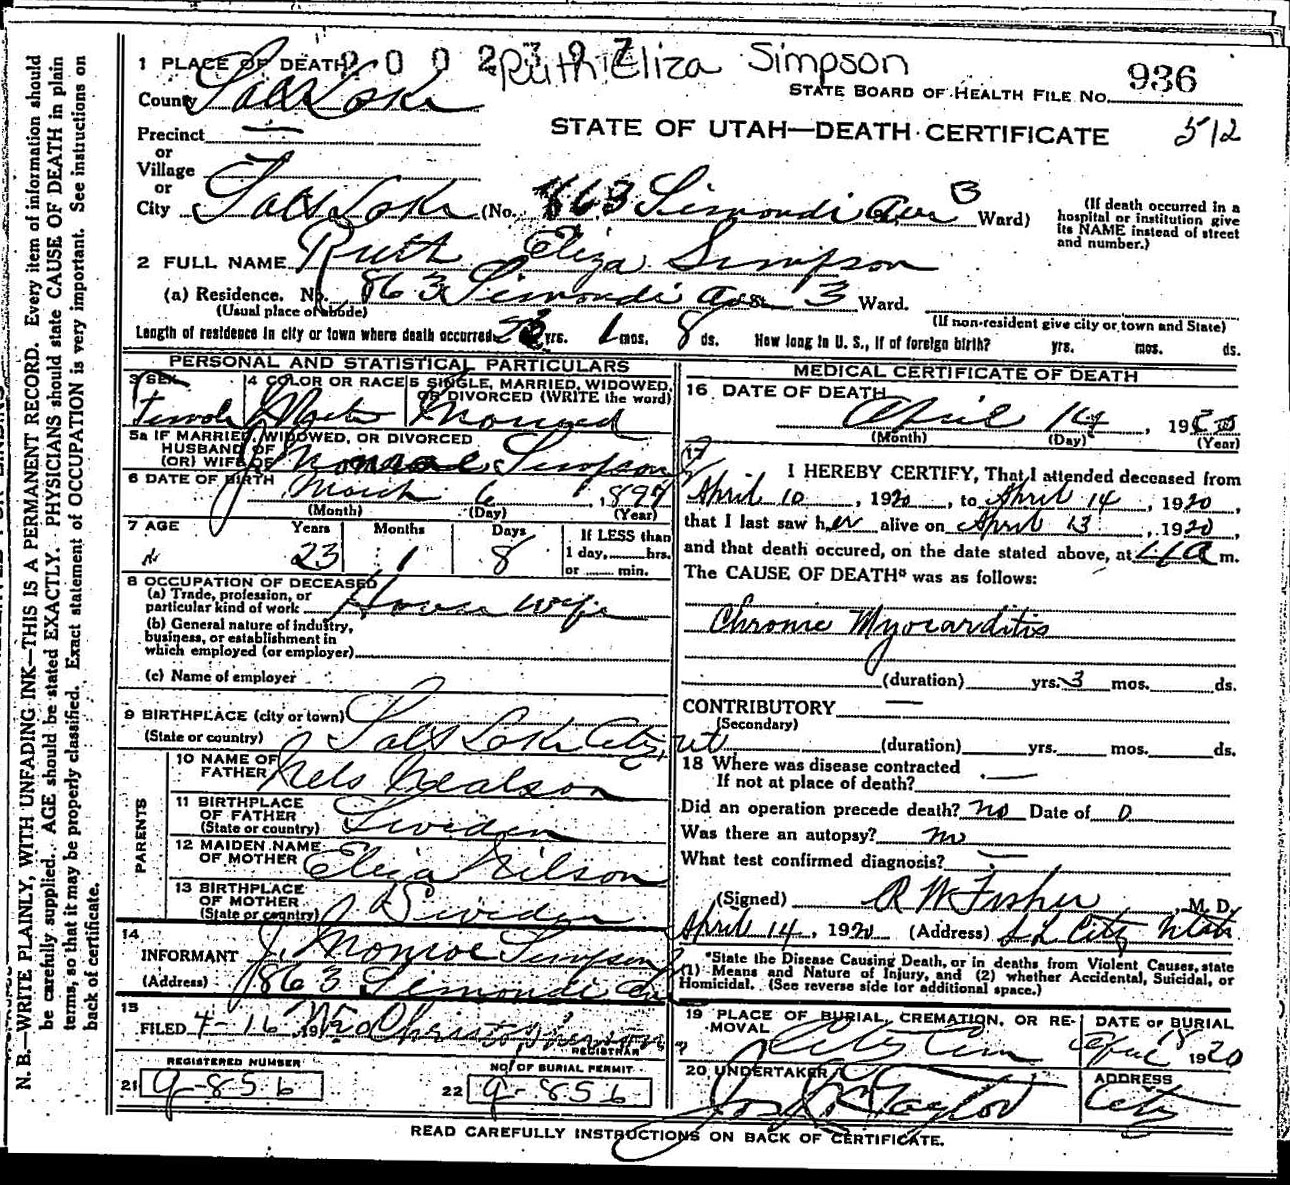 0 0 0 2 3 0 7
Ruth Eliza Simpson
936
1 PLACE OF DEATH
STATE BOARD OF HEALTH FILE No.
County Salt Lake
STATE OF UTAH—DEATH CERTIFICATE 512
Precinct —
or
Village
or
City Salt Lake (No. 863 Simondi Ave 3 Ward)
(If death occurred in a
hospital or institution give
its NAME instead of street
and number.)
2 FULL NAME Ruth Eliza Simpson
(a) Residence. No. 863 Simondi Ave St. 3 Ward.
(Usual place of abode)
(If non-resident give city or town and State)
Length of residence in city or town where death occurred 23 yrs. 1 mos. 8 ds. How long in U. S., if of foreign birth? yrs. mos. ds.
PERSONAL AND STATISTICAL PARTICULARS
3 SEX
4 COLOR OR RACE
5 SINGLE, MARRIED, WIDOWED,
OR DIVORCED (WRITE the word)
Female White Married
5a IF MARRIED, WIDOWED, OR DIVORCED
HUSBAND OF
(OR) WIFE OF J Monroe Simpson
6 DATE OF BIRTH March 6, 1897
(Month) (Day) (Year)
7 AGE Years Months Days
23 1 8
If LESS than
1 day, hrs.
or min.
8 OCCUPATION OF DECEASED
(a) Trade, profession, or
particular kind of work House wife
(b) General nature of industry,
business, or establishment in
which employed (or employer)
(c) Name of employer
9 BIRTHPLACE (city or town)
(State or country) Salt Lake City, Ut
PARENTS
10 NAME OF
FATHER Nels Nealson
11 BIRTHPLACE
OF FATHER
(State or country) Sweden
12 MAIDEN NAME
OF MOTHER Eliza Nilson
13 BIRTHPLACE
OF MOTHER
(State or country) Sweden
14
INFORMANT J. Monroe Simpson
(Address) 863 Simondi Av
15
FILED 4-16 1920
REGISTRAR
REGISTERED NUMBER
21 9-856
NO. OF BURIAL PERMIT
22 9-856
MEDICAL CERTIFICATE OF DEATH
16 DATE OF DEATH
April 14, 1920
(Month) (Day) (Year)
17
I HEREBY CERTIFY, That I attended deceased from
April 10, 1920, to April 14, 1920,
that I last saw her alive on April 13, 1920,
and that death occured, on the date stated above, at 4 a m.
The CAUSE OF DEATH* was as follows:
Chronic Myocarditis
(duration) yrs. 3 mos. ds.
CONTRIBUTORY —
(Secondary)
(duration) yrs. mos. ds.
18 Where was disease contracted
If not at place of death? —
Did an operation precede death? no Date of 0
Was there an autopsy? no
What test confirmed diagnosis? —
(Signed) R W Fisher M. D.
April 14, 1920 (Address) S L City Utah
*State the Disease Causing Death, or in deaths from Violent Causes, state
(1) Means and Nature of Injury, and (2) whether Accidental, Suicidal, or
Homicidal. (See reverse side for additional space.)
19 PLACE OF BURIAL, CREMATION, OR RE-
MOVAL City Cem
DATE OF BURIAL
April 18 1920
20 UNDERTAKER
Jos Taylor
ADDRESS
City
READ CAREFULLY INSTRUCTIONS ON BACK OF CERTIFICATE.
N. B.—WRITE PLAINLY, WITH UNFADING INK—THIS IS A PERMANENT RECORD. Every item of information should
be carefully supplied. AGE should be stated EXACTLY. PHYSICIANS should state CAUSE OF DEATH in plain
terms, so that it may be properly classified. Exact statement of OCCUPATION is very important. See instructions on
back of certificate.